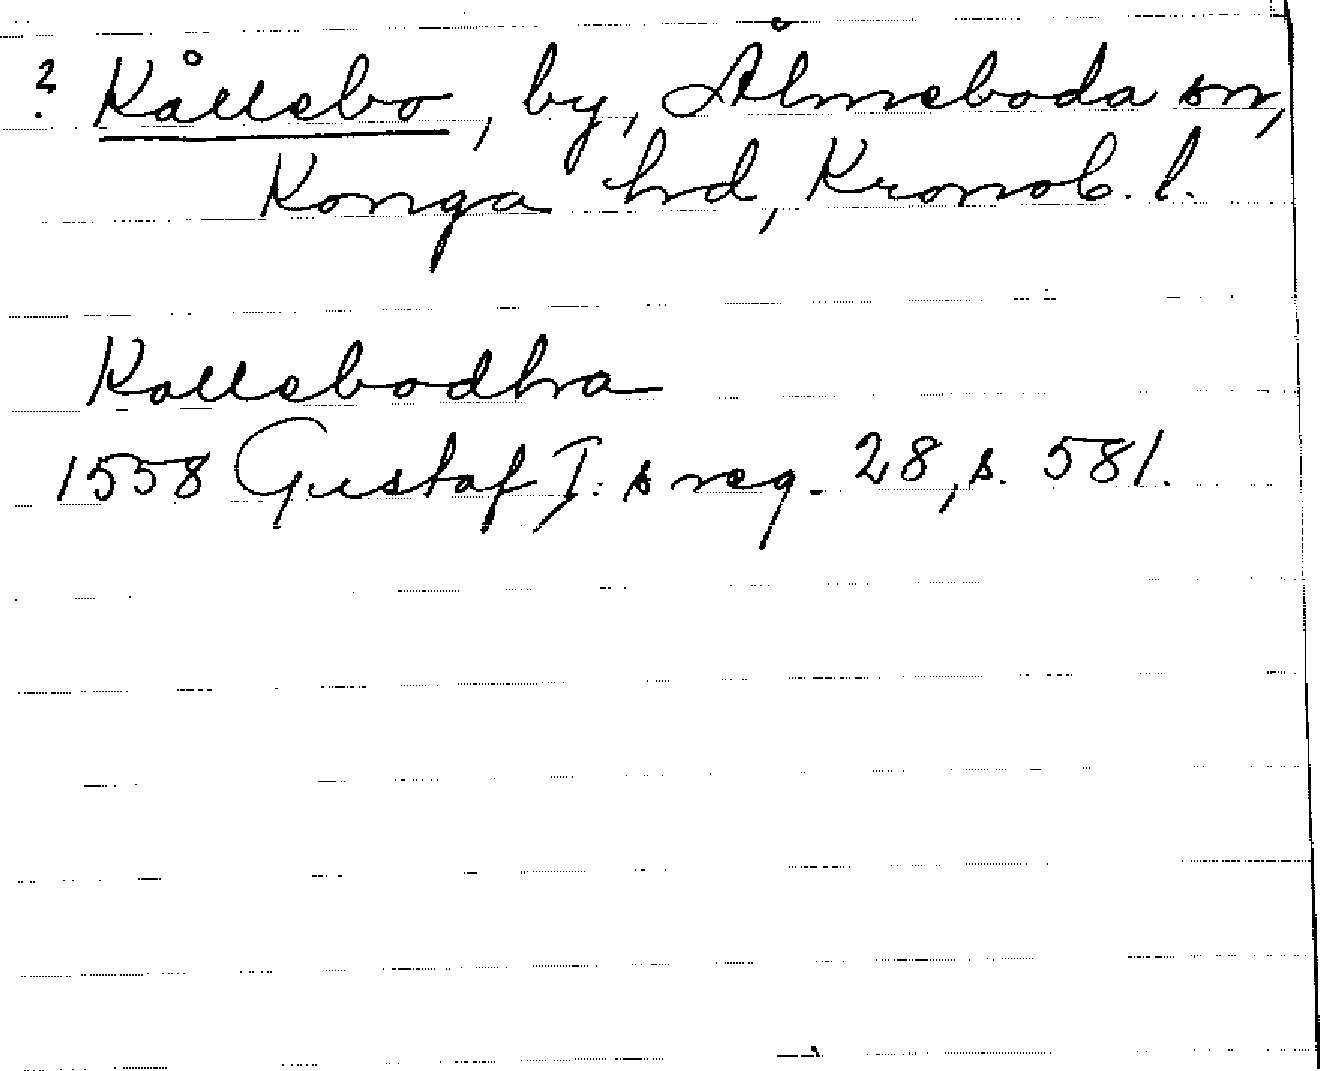 ? Kållebo, by, Ålmeboda sn,
Konga hd, Kronob. l.
Kallebodha
1558 Gustaf I:s reg. 28, s. 581.